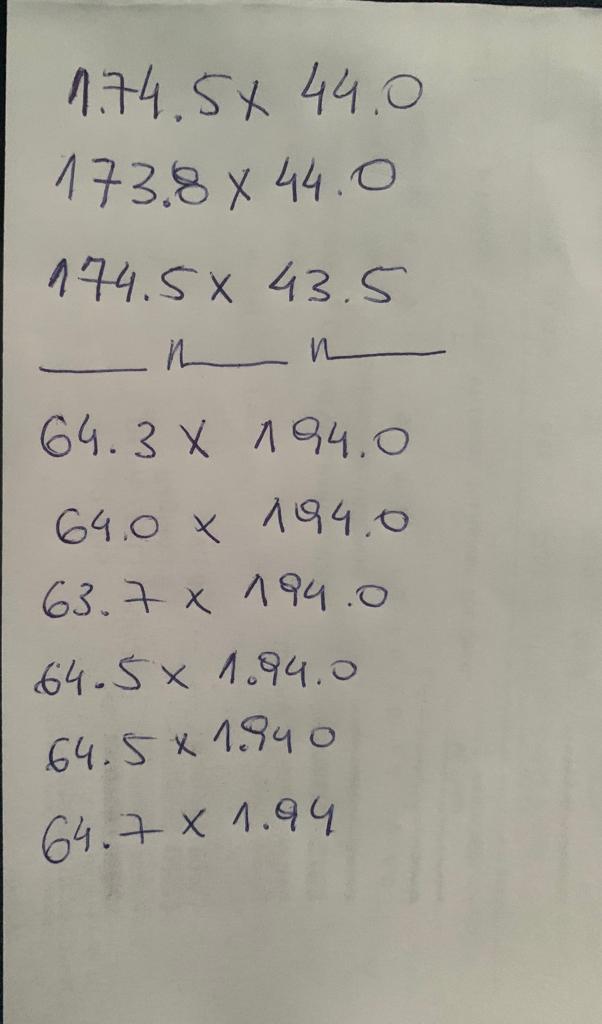 174.5 x 44.0
173.8 x 44.0
174.5 x 43.5
64.3 x 194.0
64.0 x 194.0
63.7 x 194.0
64.5 x 1.94.0
64.5 x 1.940
64.7 x 1.94